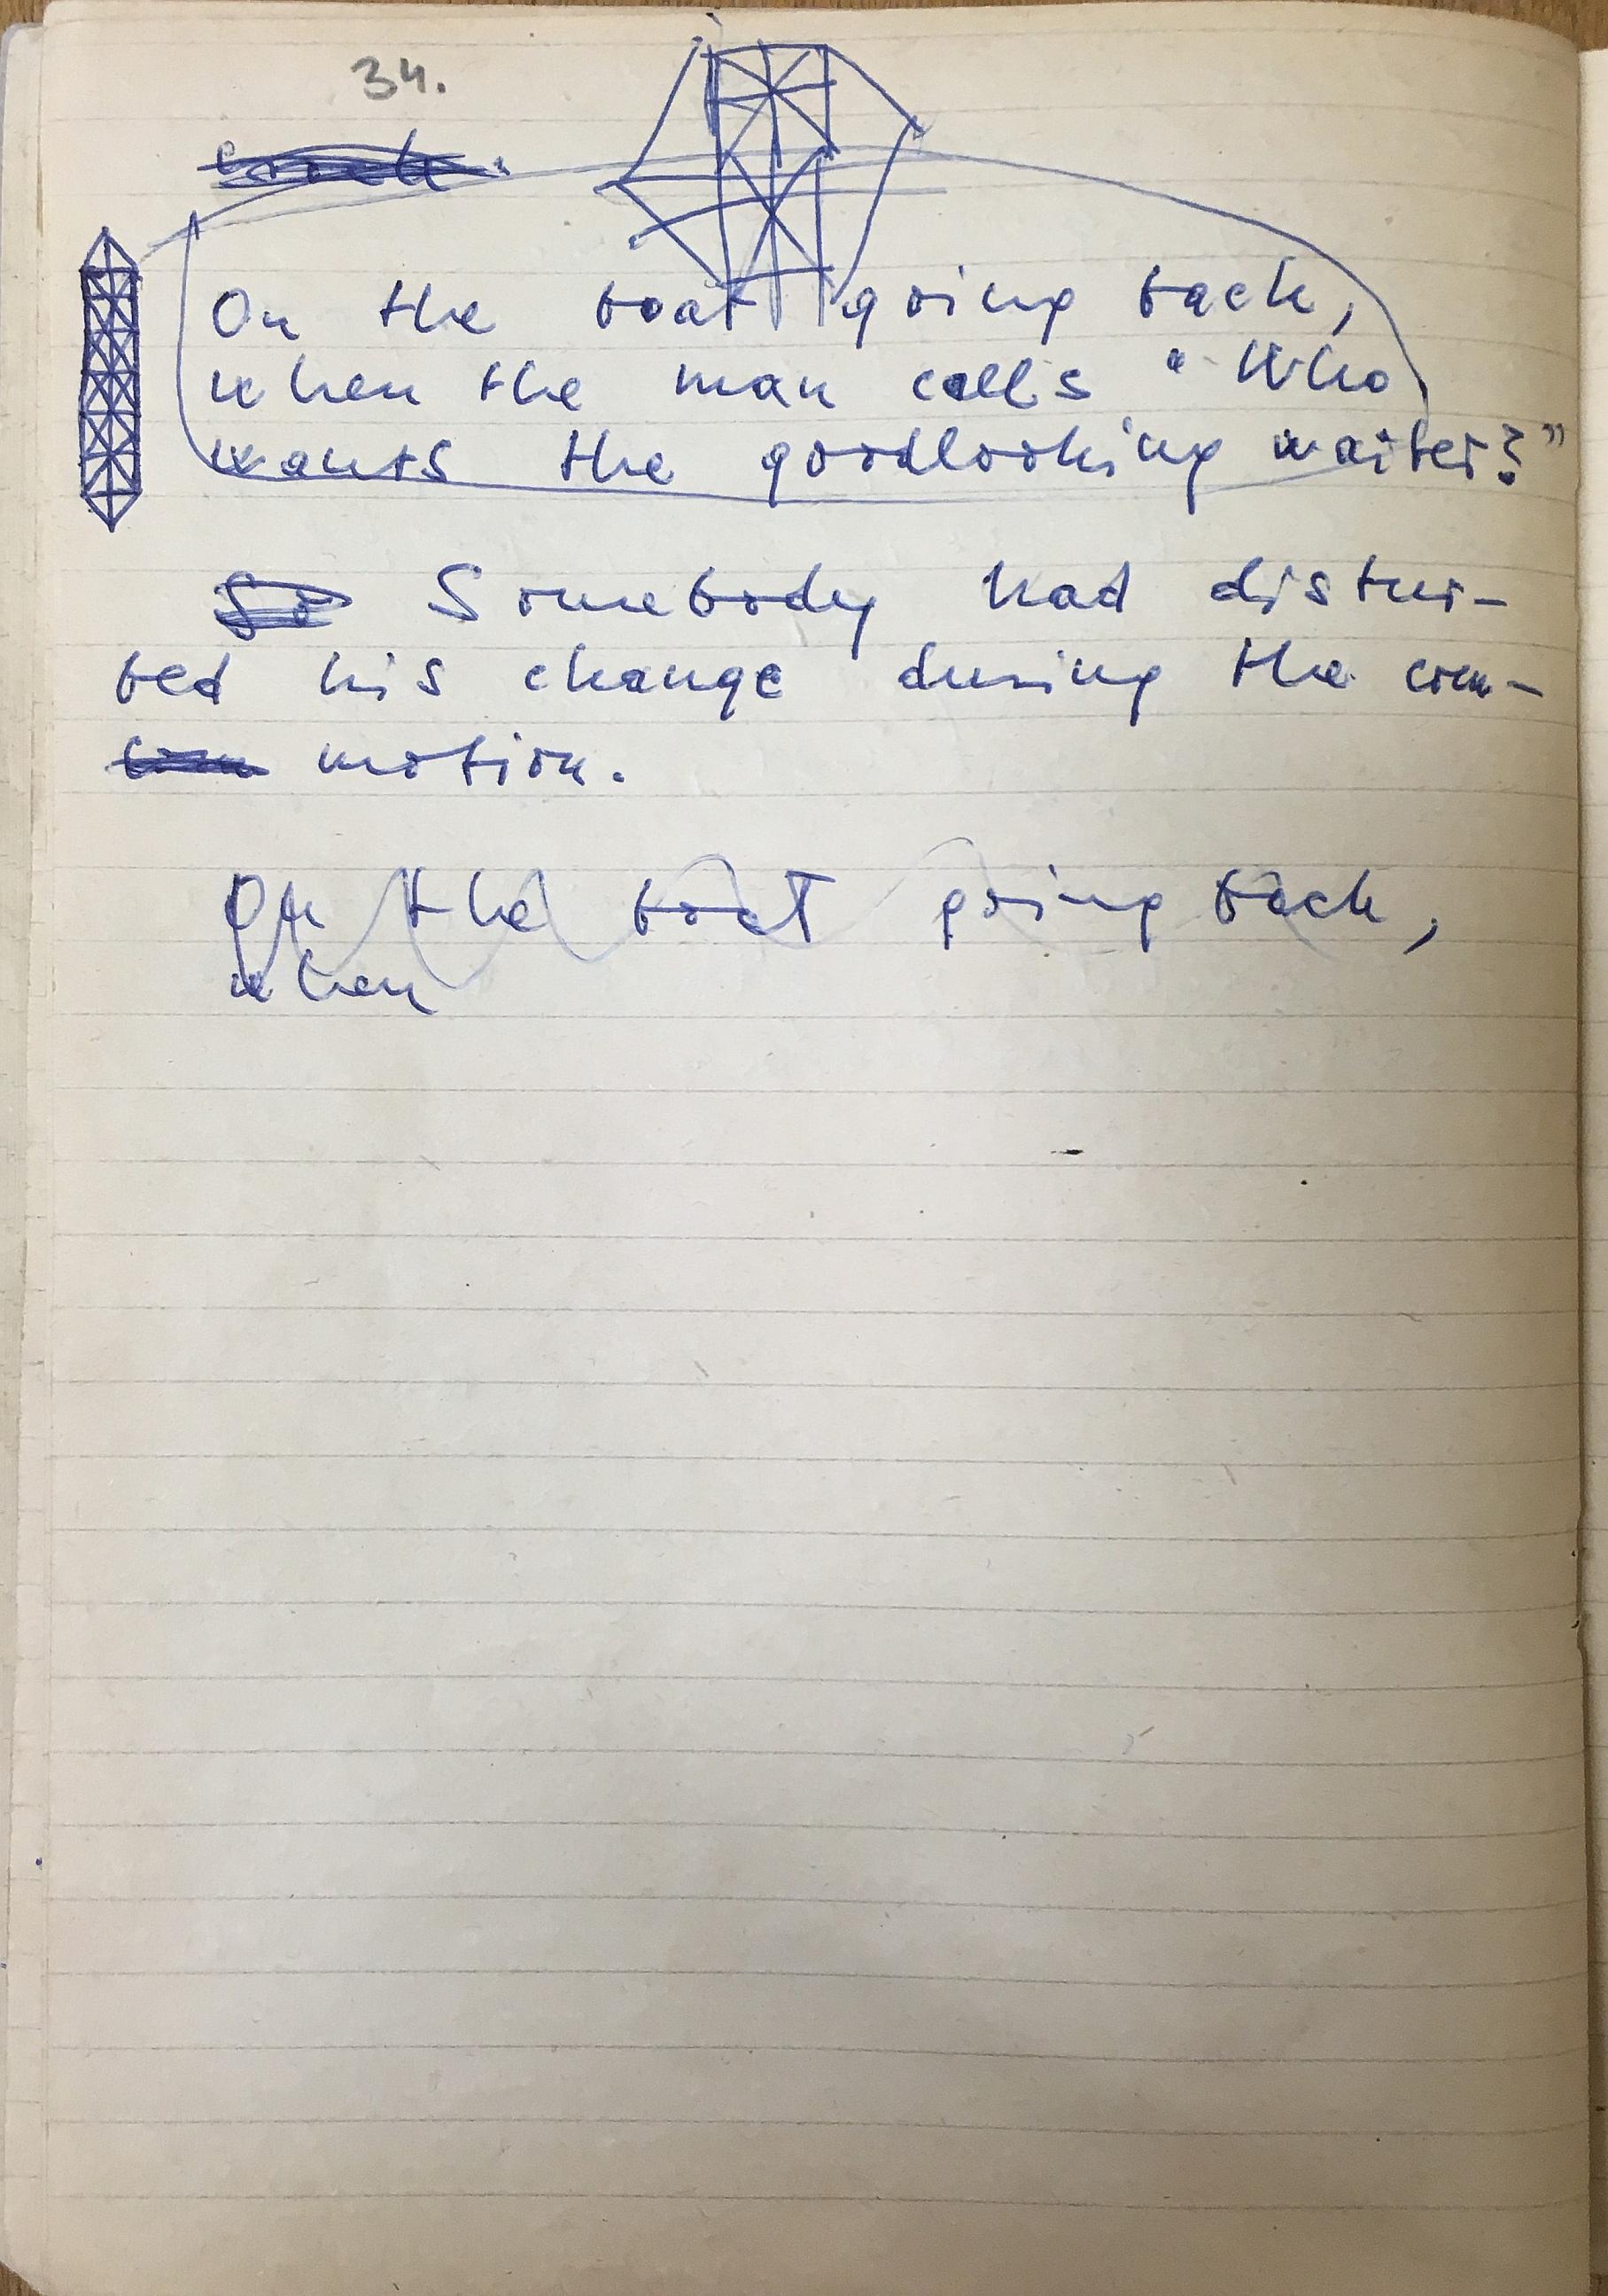 34.
On the boat going back,
when the man calls "Who
wants the goodlooking waiter?"
So Somebody had distur-
bed his change during the com-
com motion.
On the boat going back,
when